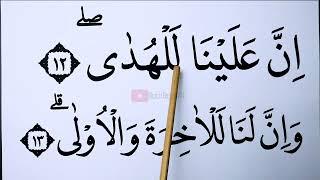 اِنَّ عَلَيْنَا لَلْهُدٰى ۖ ١٢
وَاِنَّ لَنَا لَلْاٰخِرَةَ وَالْاُوْلٰى ۗ ١٣